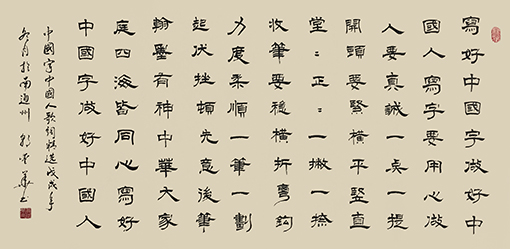 寫好中國字做好中
國人寫字要用心做
人要真誠一点一提
開頭要緊橫平竪直
堂〻正〻一撇一捺
收筆要穩橫折彎鈎
力度柔順一筆一劃
起伏挫頓先意後筆
翰墨有神中華大家
庭四海皆同心寫好
中國字做好中國人
中國字中國人歌詞精选戊戌年
冬月於南通州